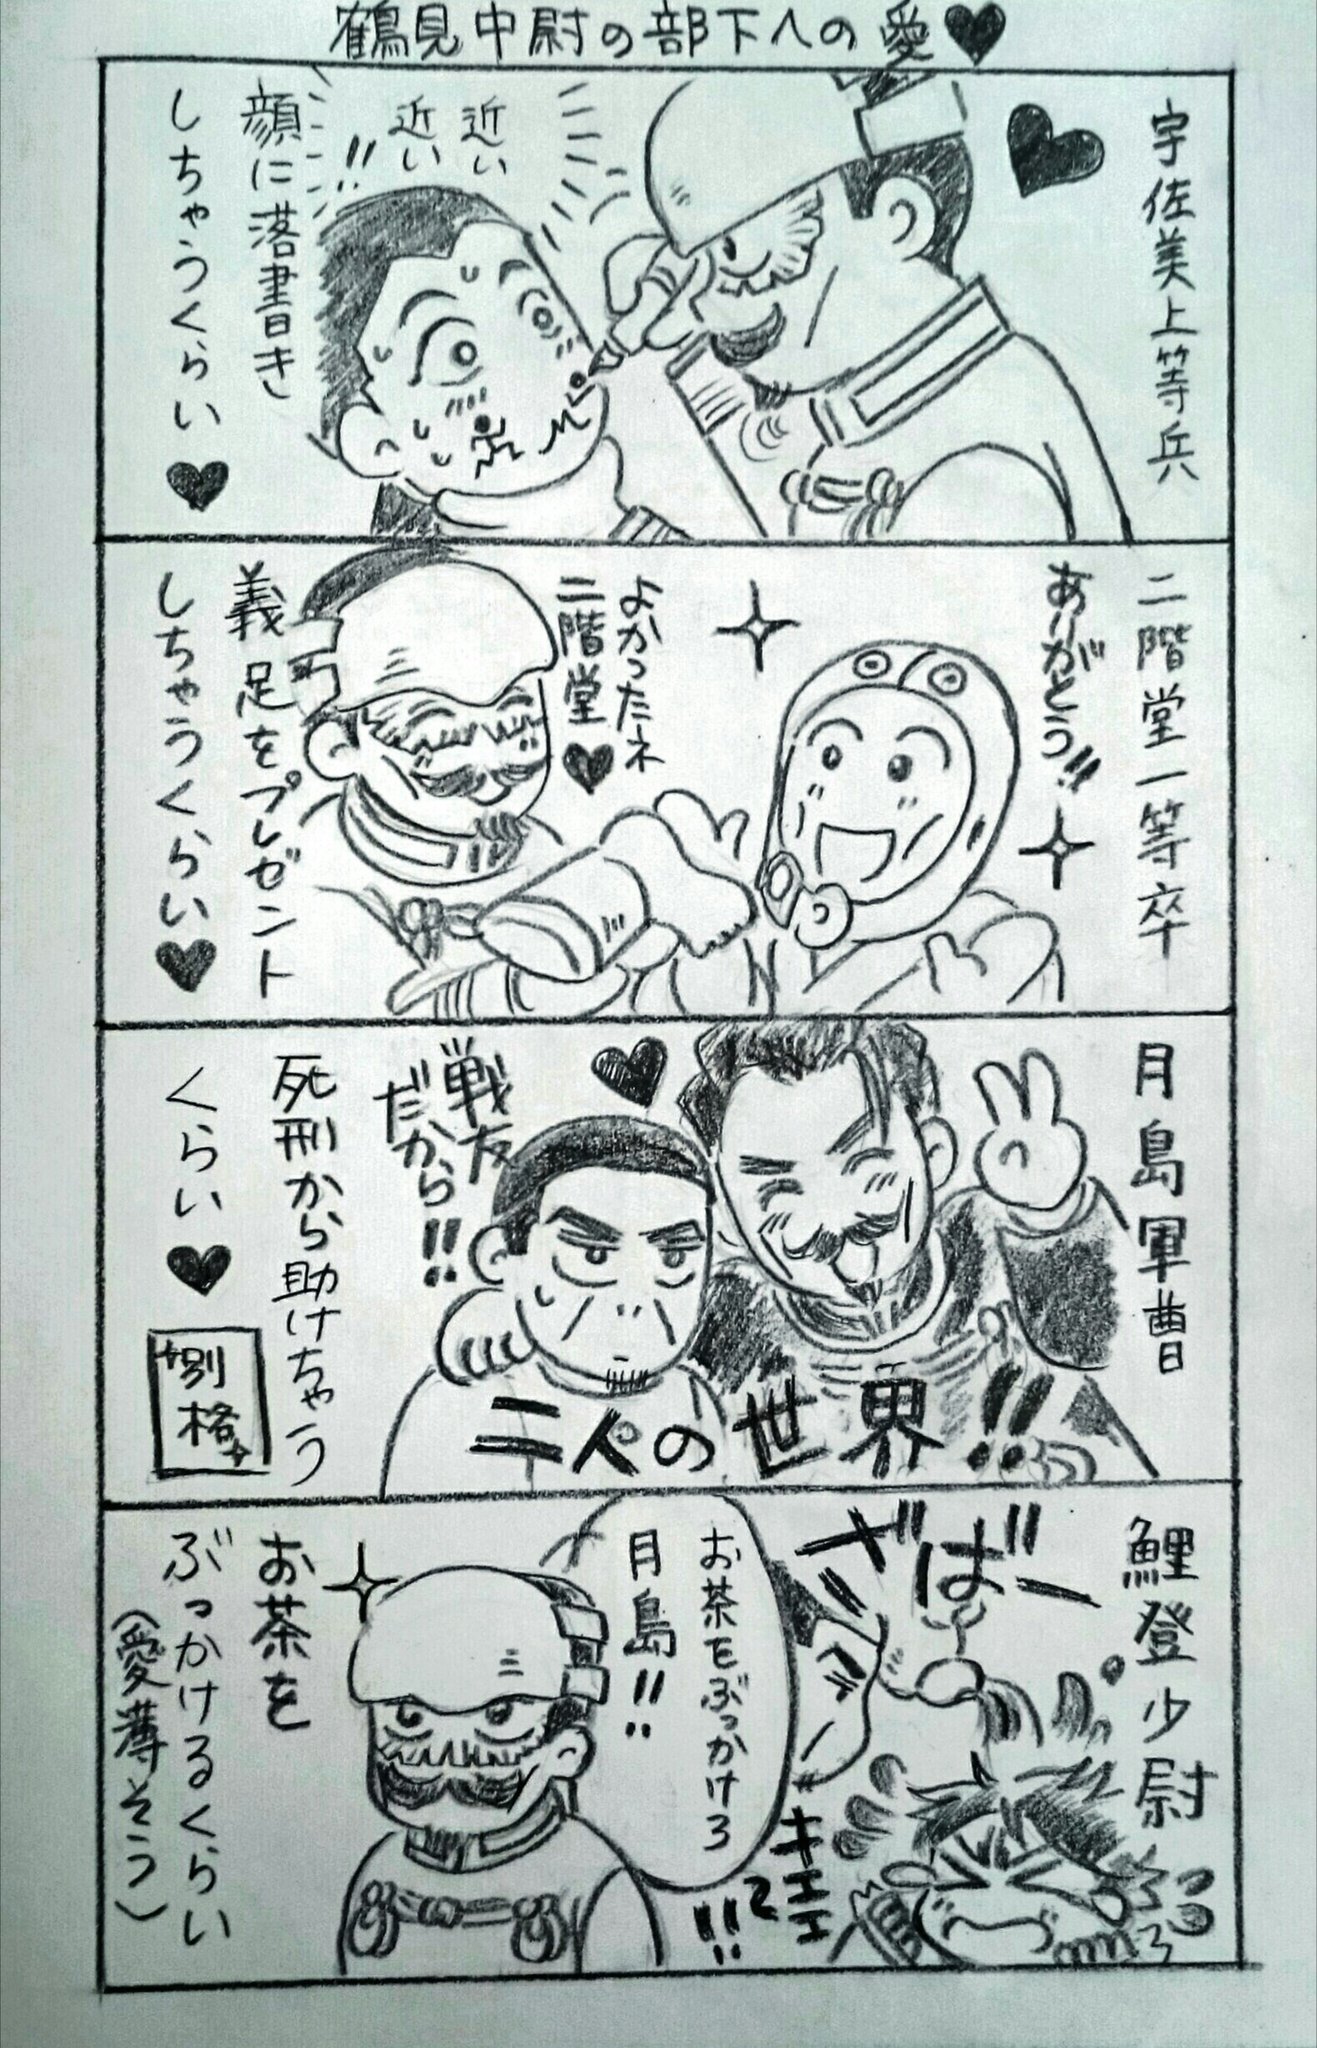 鶴見中尉の部下への愛♥
宇佐美上等兵
近い
近い!!
顔に落書き
しちゃうくらい♥
二階堂一等卒
ありがとう!!
よかったネ
二階堂♥
義足をプレゼント
しちゃうくらい♥
月島軍曹
戦友
だから!!
二人の世界!!
死刑から助けちゃう
くらい♥
別格
鯉登少尉
ざばー
キエエエ
お茶をぶっかけろ
月島!!
お茶を
ぶっかけるくらい
(愛薄そう)